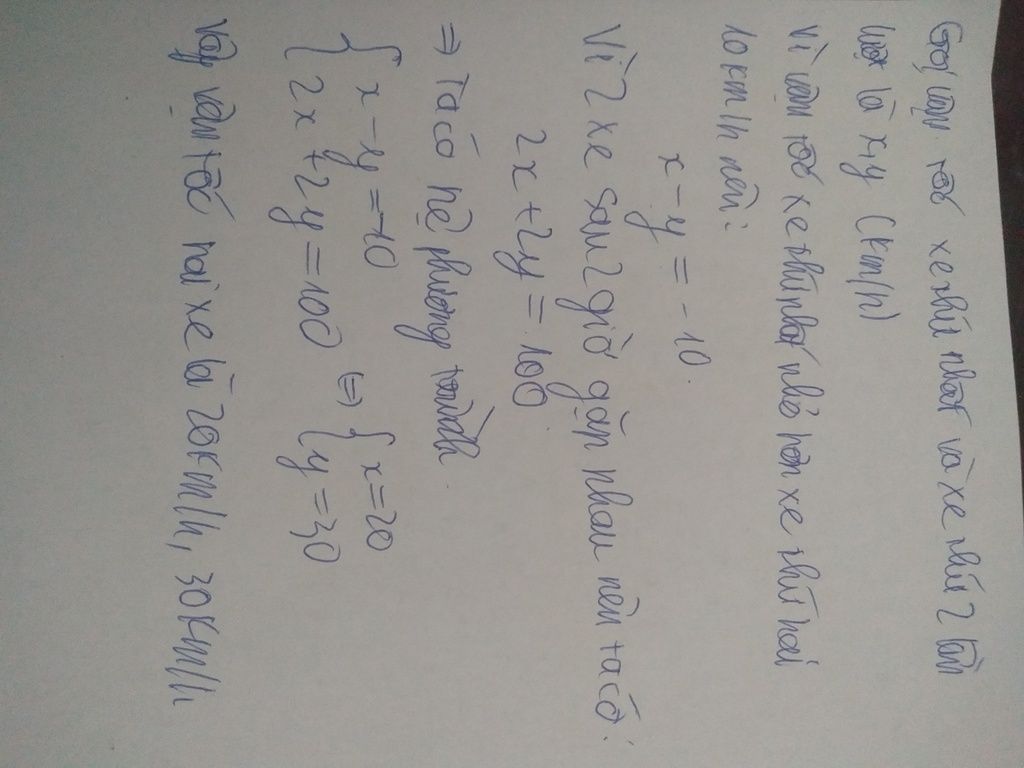 Gọi vận tốc xe thứ nhất và xe thứ 2 lần
lượt là x, y (km/h)
Vì vận tốc xe thứ nhất nhỏ hơn xe thứ hai
10km/h nên:
x - y = -10.
Vì 2 xe sau 2 giờ gặp nhau nên ta có:
2x + 2y = 100
⇒ Ta có hệ phương trình
{ x - y = -10
2x + 2y = 100 ⇔ { x = 20
y = 30
Vậy vận tốc hai xe là 20km/h, 30km/h